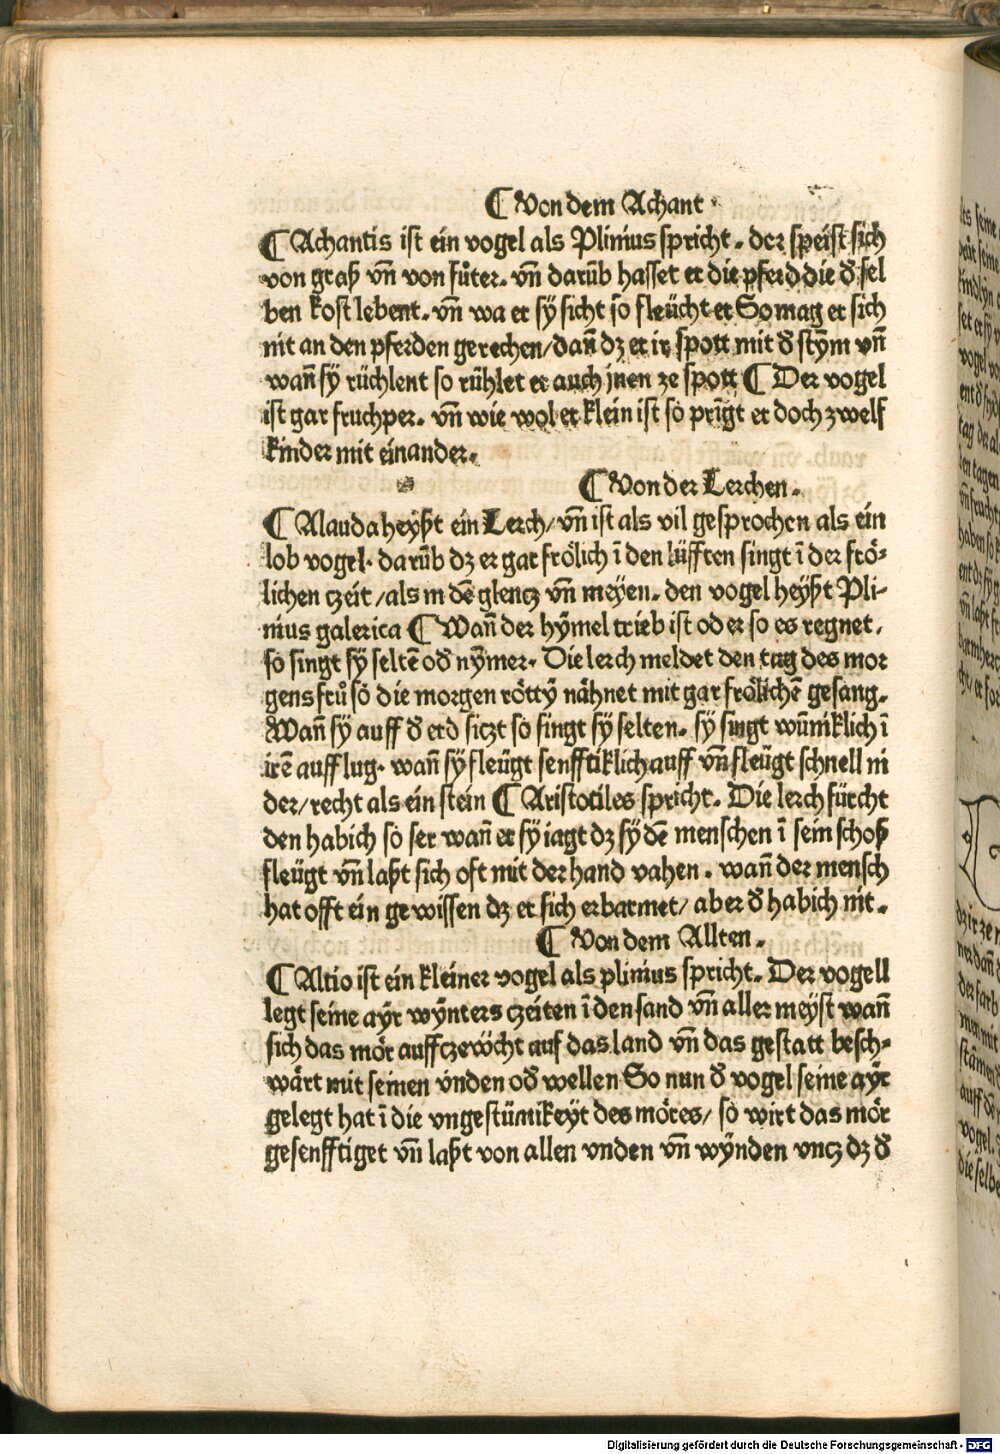 ¶ Von dem Achant.
¶ Achantis ist ein vogel als Plinius spricht. der speist sich
von graß vñ von fůter. vñ darũb hasset er die pferd die đ sel
ben kost lebent. vñ wa er sÿ sicht so fleücht er So mag er sich
nit an den pferden gerechen/ dañ dʒ er ir spott mit đ stÿm vñ
wañ sÿ rüchlent so rühlet er auch jnen ze spott ¶ Der vogel
ist gar fruchper. vñ wie wol er klein ist so prĩgt er doch zwelf
kinder mit einander.
¶ Von der Lerchen.
¶ Alauda heyßt ein Lerch/ vñ ist als vil gesprochen als ein
lob vogel. darũb dʒ er gar frölich ĩ den lüfften singt ĩ der frö-
lichen czeit/ als in dẽ glencʒ vñ meyen. den vogel heyßt Pli-
nius galerica ¶ Wañ der hÿmel trieb ist oder so es regnet.
so singt sÿ seltẽ ođ nÿmer. Die lerch meldet den tag des mor
gens frů so die morgen röttÿ nähnet mit gar frölichẽ gesang.
Wañ sÿ auff đ erd siczt so singt sÿ selten. sÿ singt wũniklich ĩ
irẽ auff lug. wañ sÿ fleügt senfftiklich auff vñ fleügt schnell ni
der/ recht als ein stein ¶ Aristotiles spricht. Die lerch fürcht
den habich so ser wañ er sÿ iagt dʒ sÿ dẽ menschen ĩ sein schoß
fleügt vñ laßt sich oft mit der hand vahen. wañ der mensch
hat offt ein gewissen dʒ er sich erbarmet/ aber đ habich nit.
¶ Von dem Allten.
¶ Altio ist ein kleiner vogel als plinius spricht. Der vogell
legt seine aÿr wÿnters czeiten ĩ den sand vñ aller meÿst wañ
sich das mör auff czewcht auf das land vñ das gestatt besch-
wärt mit seinen vnden ođ wellen So nun đ vogel seine aÿr
gelegt hat ĩ die vngestümikeÿt des möres/ so wirt das mör
gesenfftiget vñ laßt von allen vnden vñ wÿnden vncʒ dʒ đ
Digitalisierung gefördert durch die Deutsche Forschungsgemeinschaft - DFG